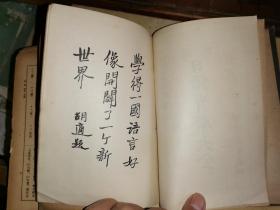 學得一國語言好
像開闢了一个新
世界
胡適題